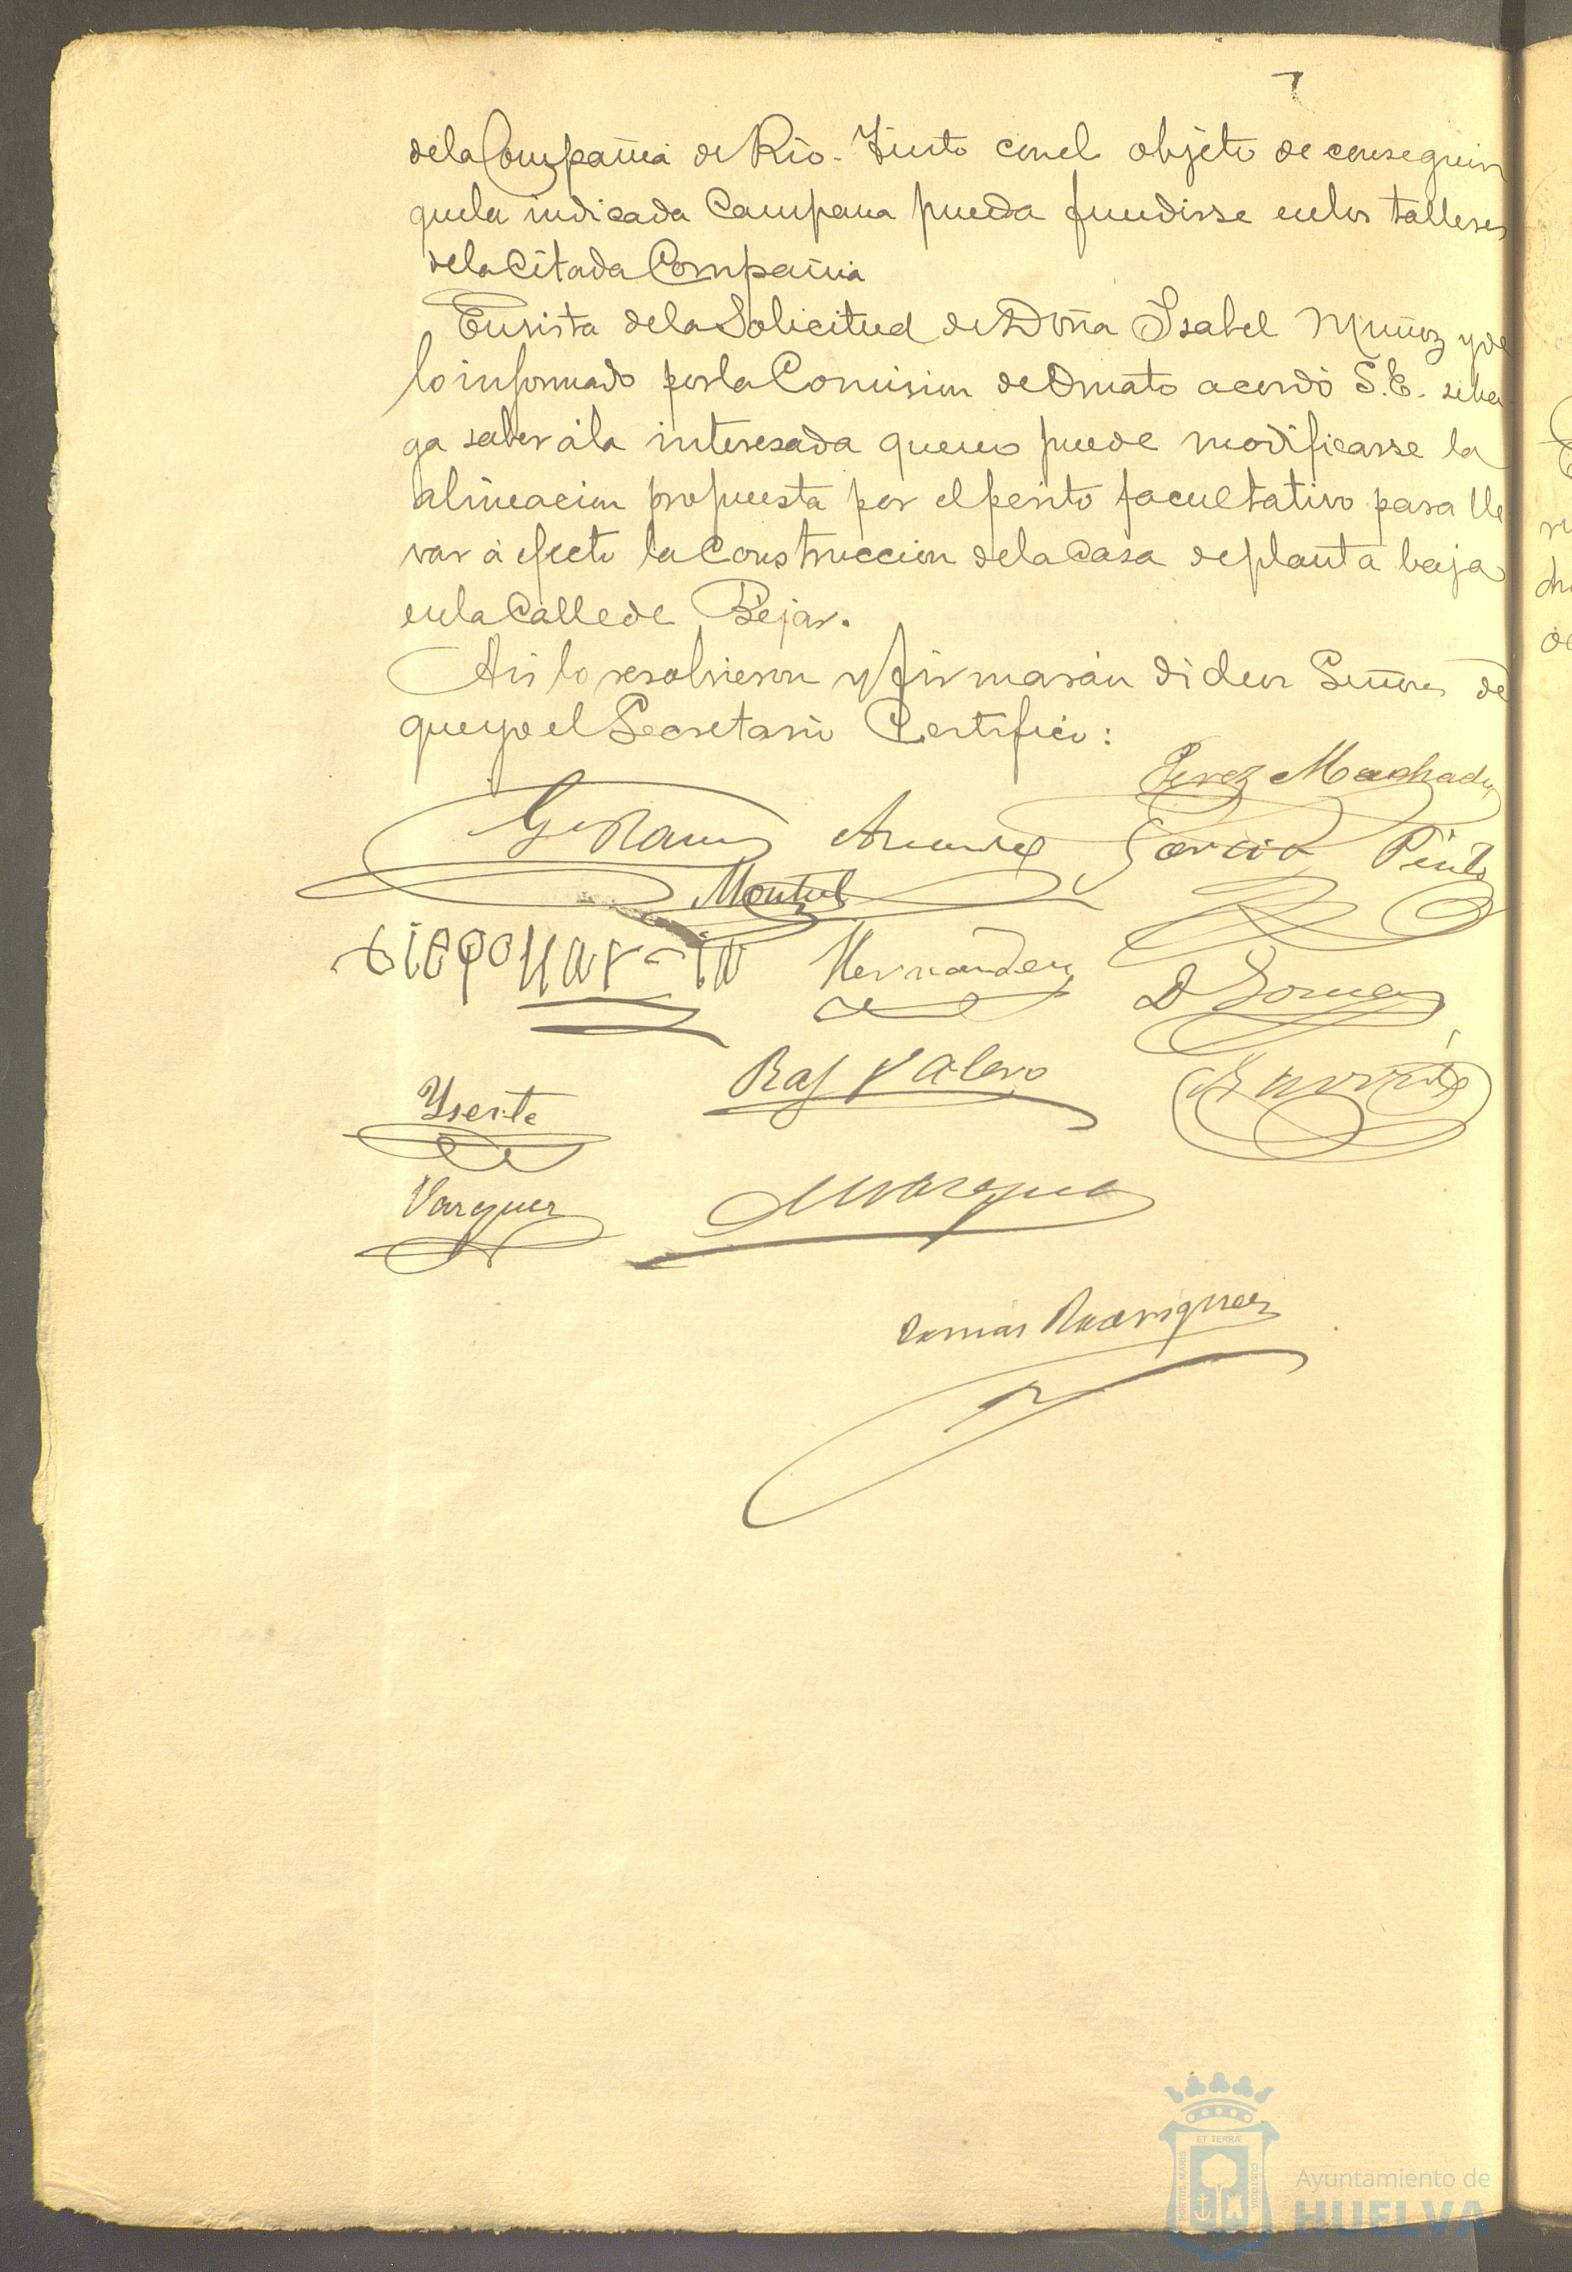 de la Compañia de Rio-Tinto con el objeto de conseguir
que la indicada Campana pueda fundirse en los talleres
de la Citada Compañia
En vista de la Solicitud de Doña Isabel Muñoz y de
lo informado por la Comision de Ornato acordó S.E. se ha-
ga saber á la interesada que no puede modificarse la
alineacion propuesta por el perito facultativo para lle
var á efecto la Construccion de la Casa de planta baja
en la Calle de Béjar.
Asi lo resolvieron y firmarán dichos Señores de
que yo el Secretario Certifico:
Perez Machado
Garcia Pinto
Montiel
Diego Martin Hernandez D Gomez
Raf Valero
Yserte
Vazquez Marquez
Tomás Rodriguez
ET TERRÆ
PORTUS MARIS
CUSTODIA
Ayuntamiento de
HUELVA